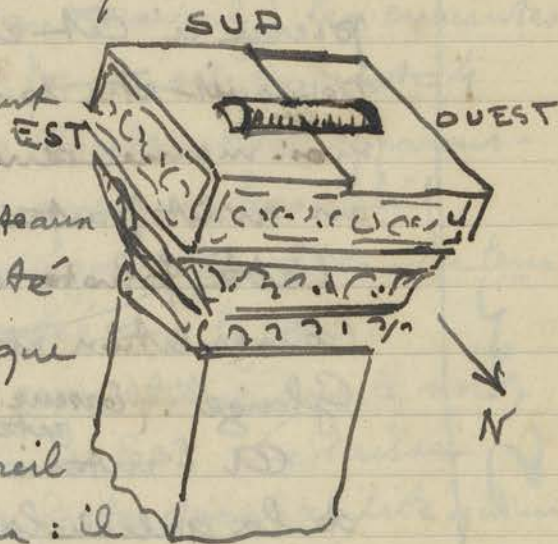 SUD
EST
OUEST
té
que
N
reil
: il